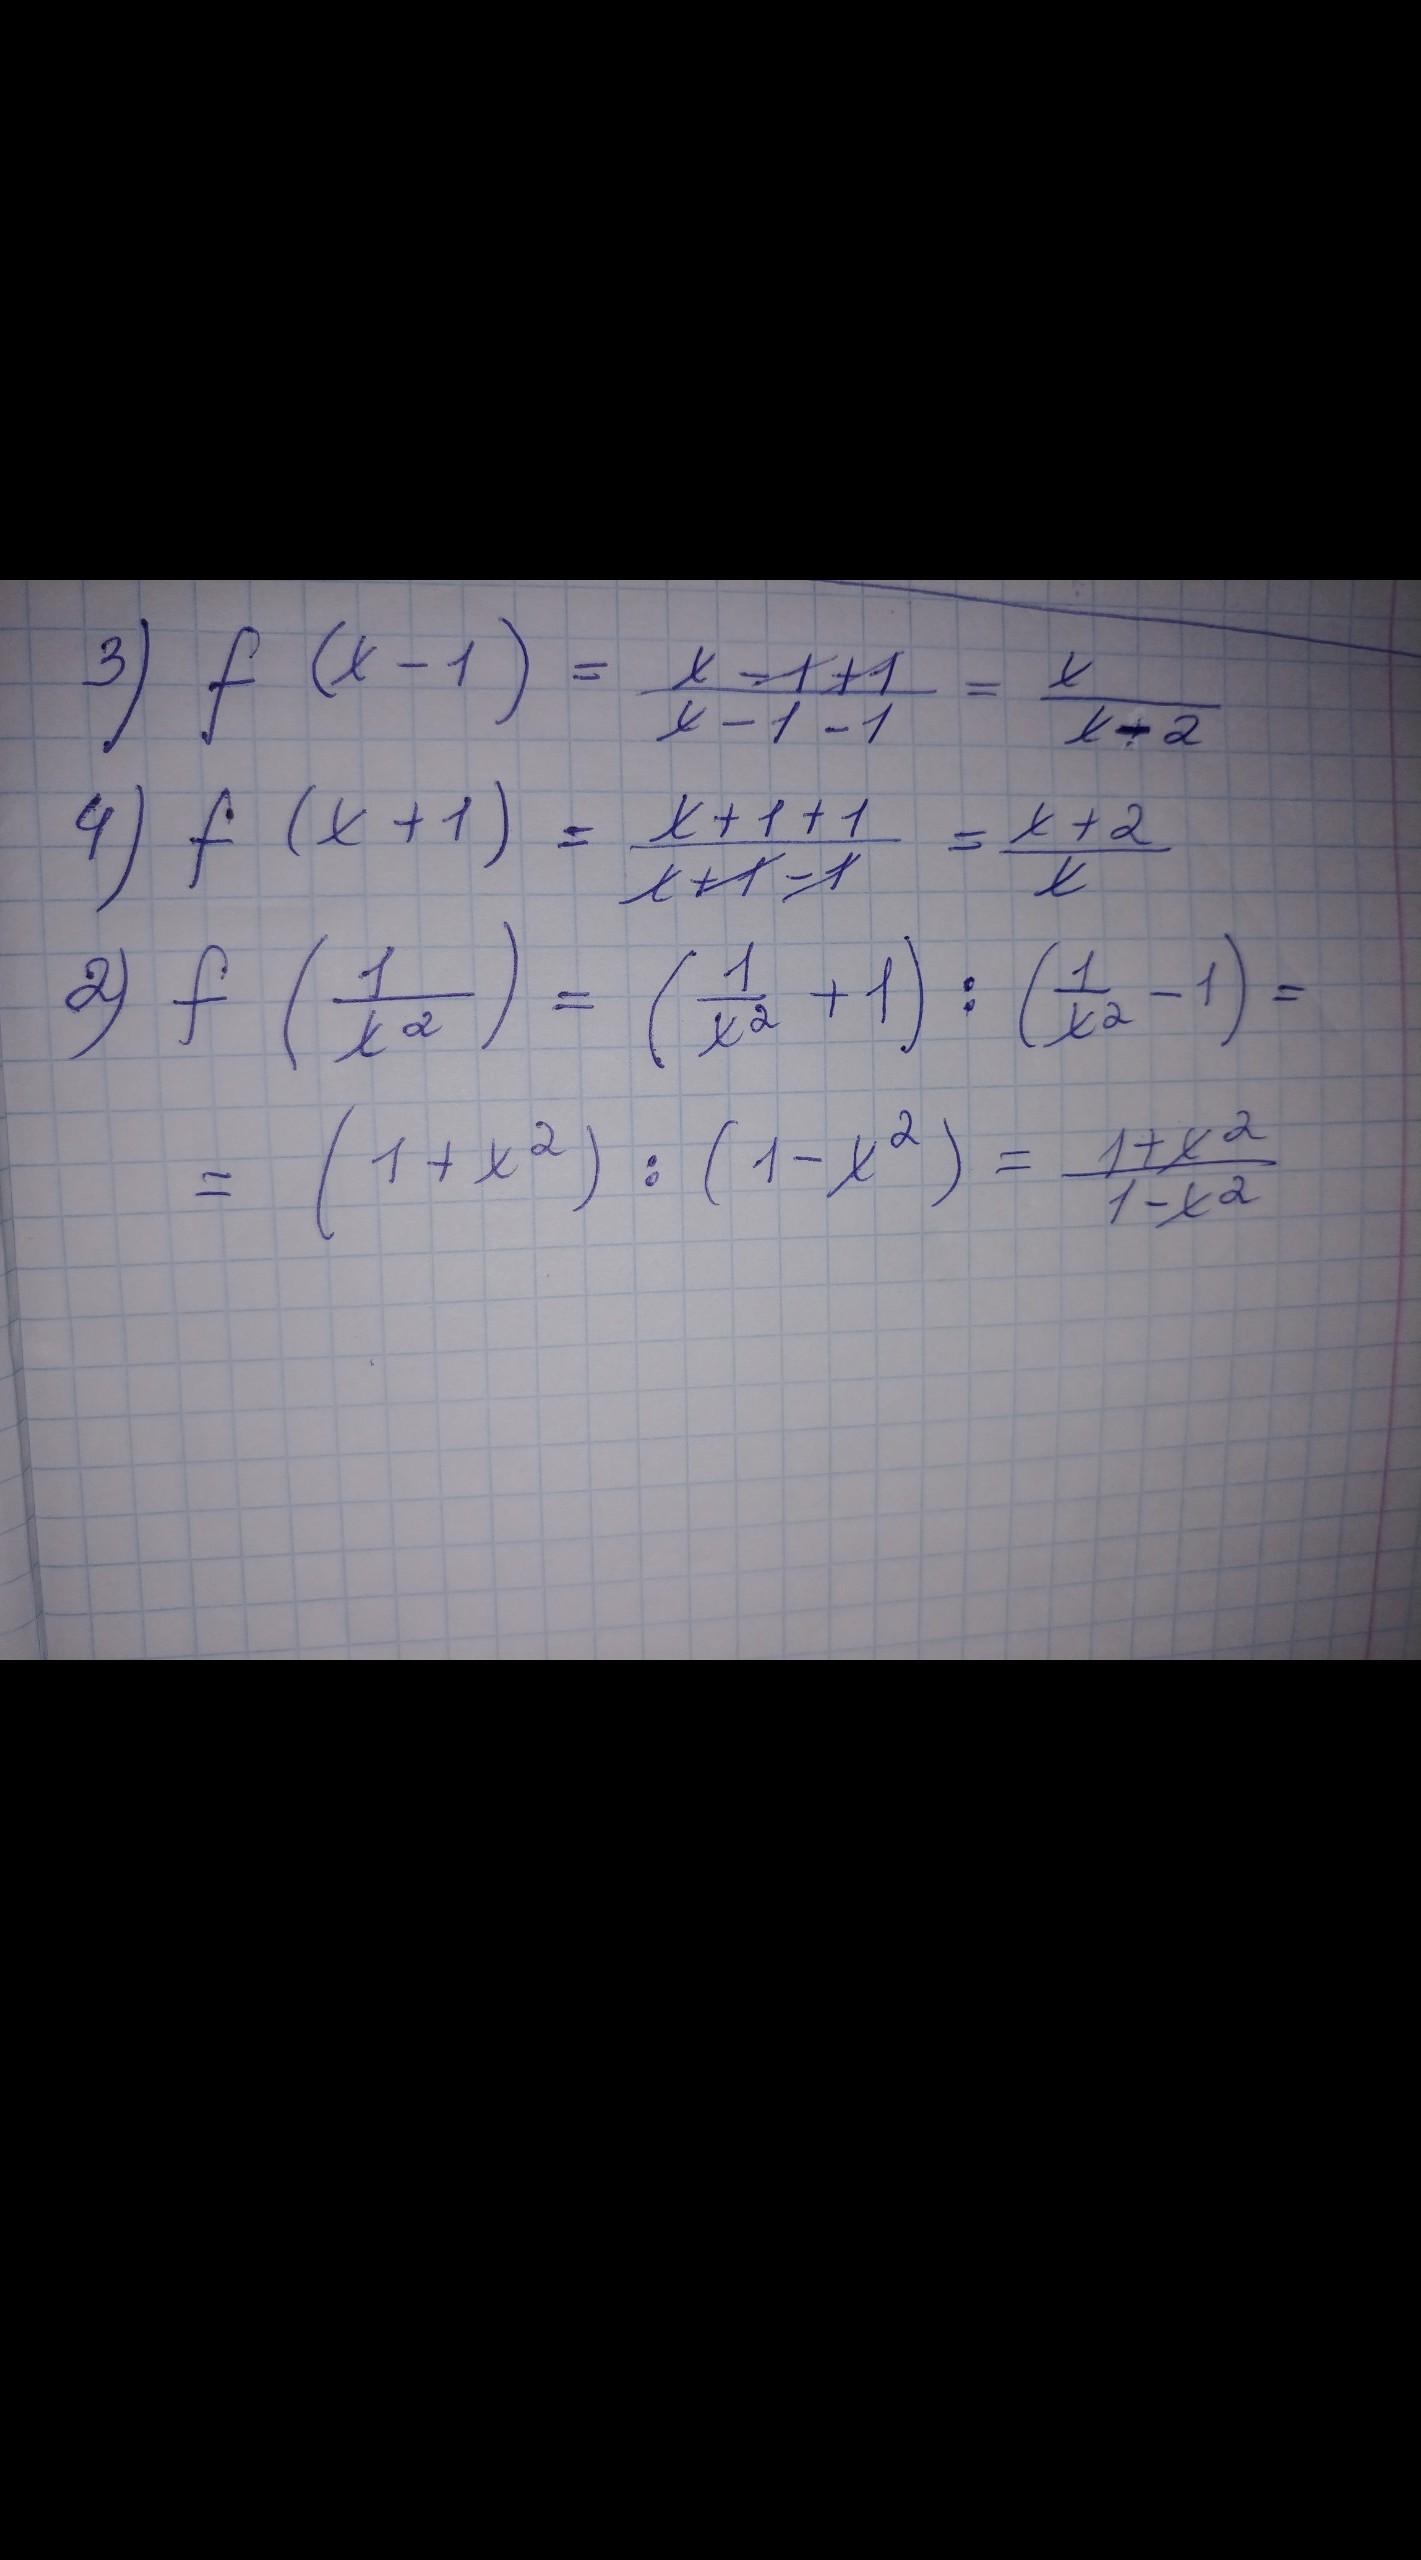 3) f (x - 1) = \frac{x - 1 + 1}{x - 1 - 1} = \frac{x}{x - 2}
4) f (x + 1) = \frac{x + 1 + 1}{x + 1 - 1} = \frac{x + 2}{x}
2) f (\frac{1}{x^2}) = (\frac{1}{x^2} + 1) : (\frac{1}{x^2} - 1) =
= (1 + x^2) : (1 - x^2) = \frac{1 + x^2}{1 - x^2}